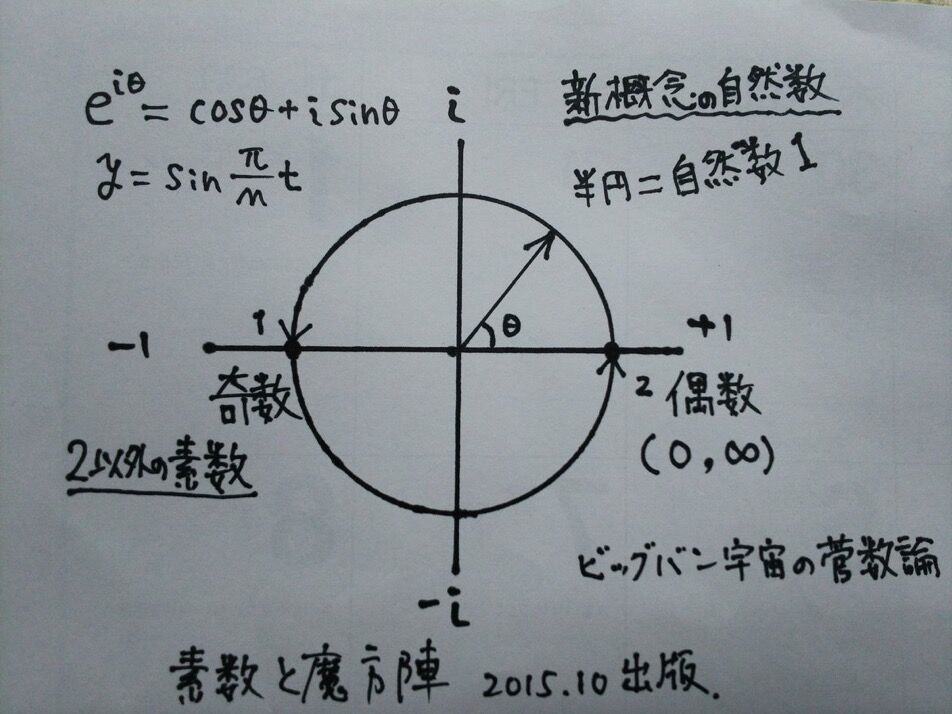 e^{iθ} = cosθ + i sinθ
y = sin π/n t
新概念の自然数
半円 = 自然数 1
i
θ
-1
1
+1
奇数
2 偶数
(0, ∞)
2以外の素数
-i
ビッグバン宇宙の菅数論
素数と魔方陣 2015.10 出版.